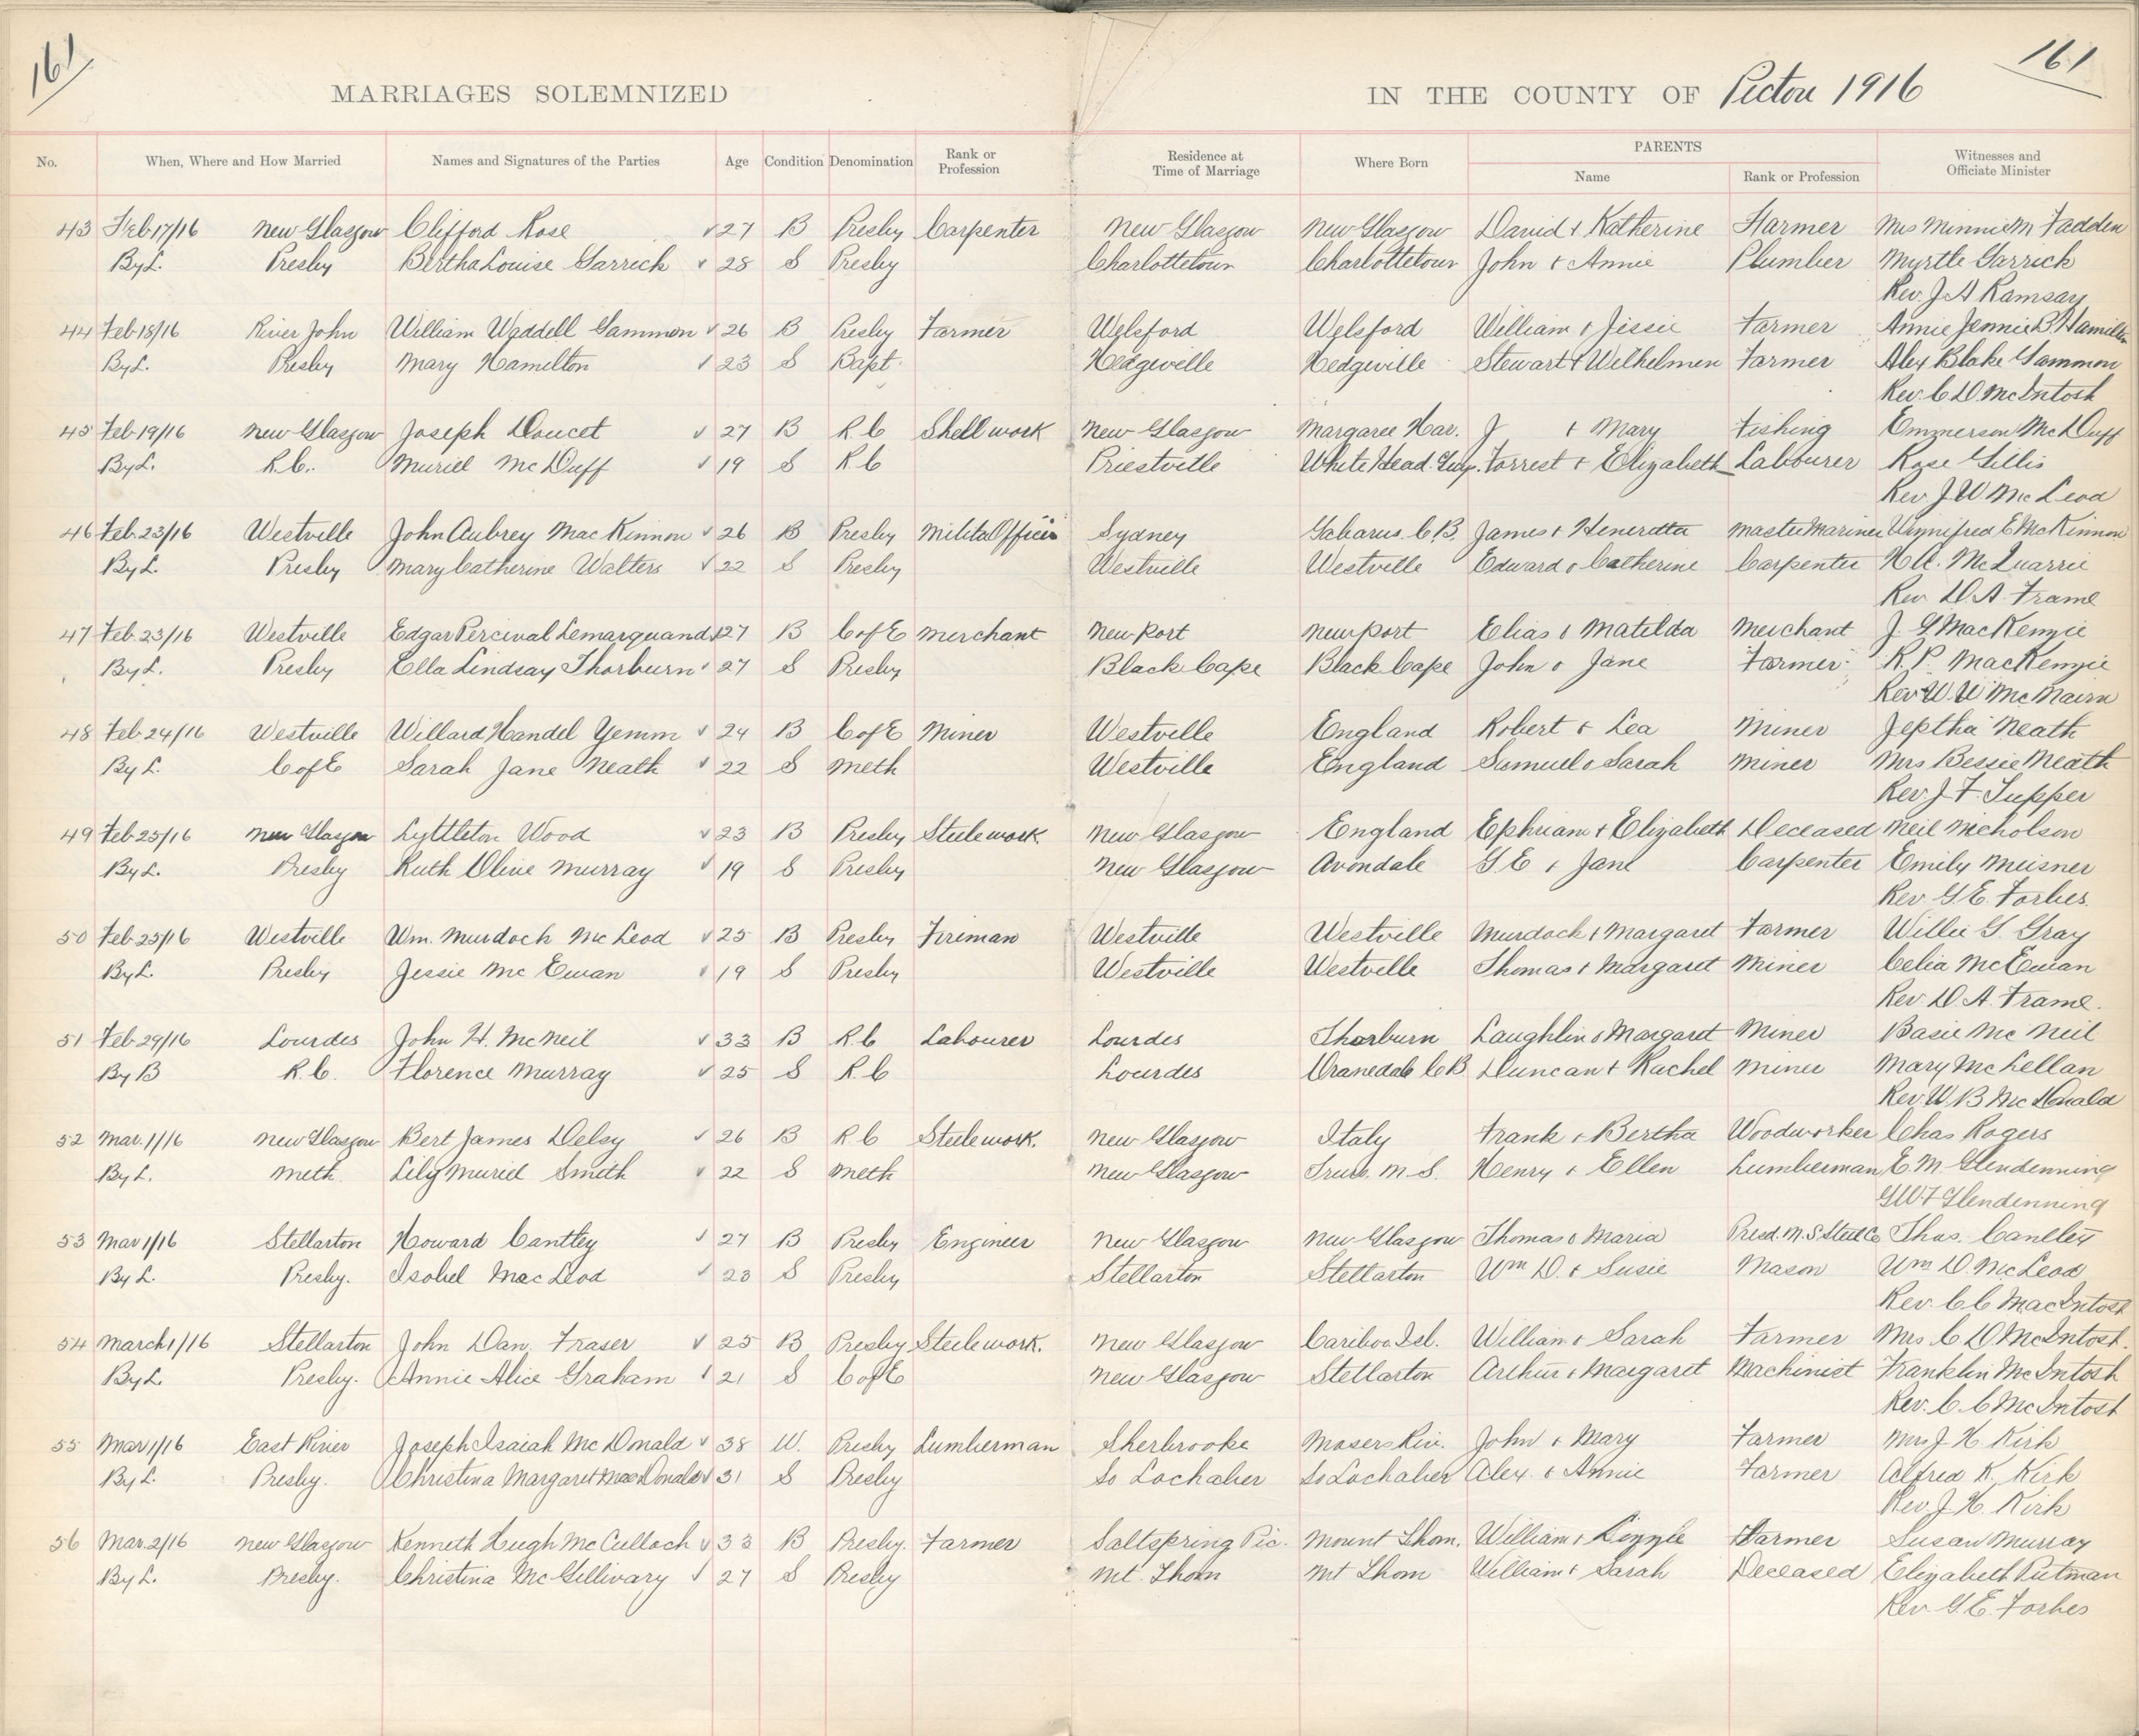 161
161
MARRIAGES SOLEMNIZED IN THE COUNTY OF Pictou 1916
No. When, Where and How Married Names and Signatures of the Parties Age Condition Denomination Rank or Profession Residence at Time of Marriage Where Born PARENTS Name Rank or Profession Witnesses and Officiate Minister
43 Feb 17/16 New Glasgow Clifford Rose √ 27 B Presby Carpenter New Glasgow New Glasgow David & Katherine Farmer Mrs Minnie McFadden
By L. Presby Bertha Louise Garrick √ 28 S Presby Charlottetown Charlottetown John & Annie Plumber Myrtle Garrick
Rev. J A Ramsay
44 Feb 18/16 River John William Waddell Gammon √ 26 B Presby Farmer Welsford Welsford William & Jessie Farmer Annie Jennie B Hamilton
By L. Presby Mary Hamilton √ 23 S Bapt. Hedgeville Hedgeville Stewart & Wilhelmen Farmer Alex Blake Gammon
Rev. C D. McIntosh
45 Feb 19/16 New Glasgow Joseph Doucet √ 27 B R C Shell work New Glasgow Margaree Har. J & Mary Fishing Emmerson McDuff
By L. R.C. Muriel McDuff √ 19 S R C Priestville White Head. Guy. Forrest & Elizabeth Labourer Rose Gillis
Rev J W McLeod
46 Feb. 23/16 Westville John Aubrey MacKinnon √ 26 B Presby Milita Officer Sydney Gabarus C.B. James & Heneretta Master Mariner Winnifred E McKinnon
By L. Presby Mary Catherine Walters √ 22 S Presby Westville Westville Edward & Catherine Carpenter H A. McQuarrie
Rev D. A. Frame
47 Feb. 23/16 Westville Edgar Percival Lemarquand √ 27 B C of E Merchant New Port New Port Elias & Matilda Merchant J. G MacKenzie
By L. Presby Ella Lindsay Thorburn √ 27 S Presby Black Cape Black Cape John & Jane Farmer R. P. MacKenzie
Rev W. W McNairn
48 Feb 24/16 Westville Willard Handel Yemm √ 24 B C of E Miner Westville England Robert & Lea Miner Jeptha Neath
By L. C of E Sarah Jane Neath √ 22 S Meth Westville England Samuel & Sarah Miner Mrs Bessie Neath
Rev. J. F. Tupper
49 Feb 25/16 New Glasgow Lyttleton Wood √ 23 B Presby Steelework. New Glasgow England Ephriam & Elizabeth Deceased Neil Nicholson
By L. Presby Ruth Olive Murray √ 19 S Presby New Glasgow Avondale G E & Jane Carpenter Emily Meisner
Rev G. E. Forbes.
50 Feb 25/16 Westville Wm. Murdoch McLeod √ 25 B Presby Fireman Westville Westville Murdock & Margaret Farmer Willie G. Gray
By L. Presby Jessie McEwan √ 19 S Presby Westville Westville Thomas & Margaret Miner Celia McEwan
Rev D. A. Frame.
51 Feb 29/16 Lourdes John H. McNeil √ 33 B R C Labourer Lourdes Thorburn Laughlin & Margaret Miner Basie McNeil
By B R.C. Florence Murray √ 25 S R C Lourdes Oranedale C B Duncan & Rachel Miner Mary McLellan
Rev. W B McDonald
52 Mar. 1/16 New Glasgow Bert James Delsy √ 26 B R C Steelework. New Glasgow Italy Frank & Bertha Woodworker Chas Rogers
By L. Meth. Lily Muriel Smith √ 22 S Meth New Glasgow Truro. N.S. Henry & Ellen Lumberman E. M Glendenning
G W F Glendenning
53 Mar 1/16 Stellarton Howard Cantley √ 27 B Presby Engineer New Glasgow New Glasgow Thomas & Maria Presd. N.S. Steel Co Thos. Cantley
By L. Presby. Isobel MacLeod √ 23 S Presby Stellarton Stellarton Wm D. & Susie Mason Wm D. McLeod
Rev. C C MacIntosh
54 March 1/16 Stellarton John Dan. Fraser √ 25 B Presby Steelework. New Glasgow Cariboo Isl. William & Sarah Farmer Mrs C D McIntosh.
By L. Presby. Annie Alice Graham √ 21 S C of E New Glasgow Stellarton Arthur & Margaret Machinist Franklin McIntosh
Rev. C. C McIntosh
55 Mar 1/16 East River Joseph Isaiah McDonald √ 38 W. Presby Lumberman Sherbrooke Mosers Riv. John & Mary Farmer Mrs J. H Kirk
By L. Presby. Christina Margaret MacDonald √ 31 S Presby So Lochaber So Lochaber Alex. & Annie Farmer Alfred K. Kirk
Rev. J. H. Kirk
56 Mar. 2/16 New Glasgow Kenneth Hugh McCulloch √ 33 B Presby. Farmer Saltspring Pic. Mount Thom. William & Lizzie Farmer Susan Murray
By L. Presby. Christina McGillivary √ 27 S Presby Mt. Thom Mt Thom William & Sarah Deceased Elizabeth Putman
Rev. G. E. Forbes